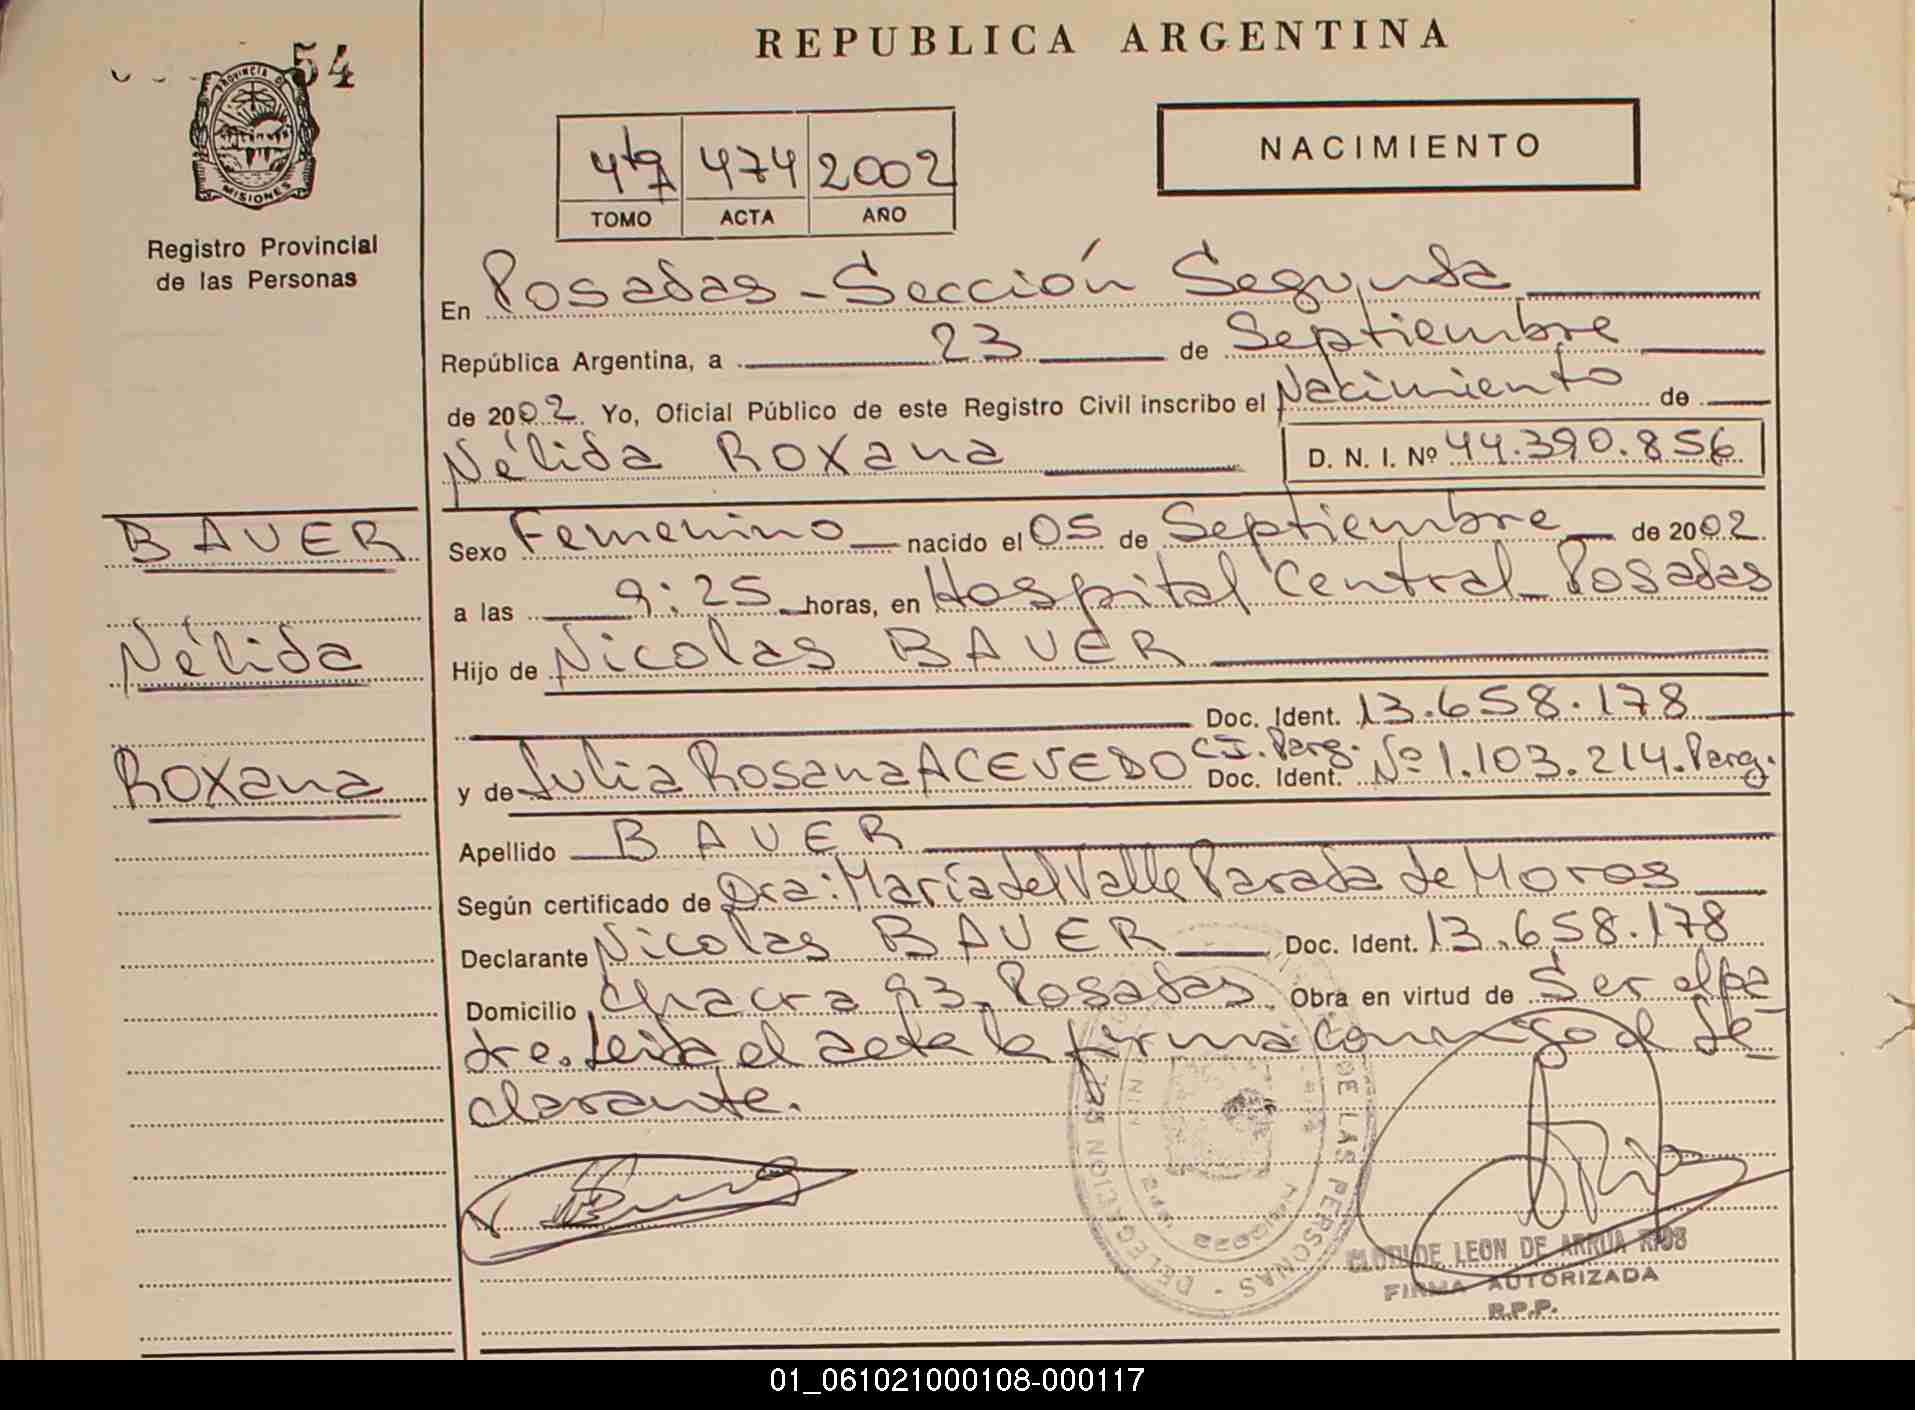 REPUBLICA ARGENTINA
54
PROVINCIA DE
MISIONES
Registro Provincial
de las Personas
NACIMIENTO
474 2002
TOMO ACTA AÑO
En Posadas - Sección Segunda
República Argentina, a 23 de Septiembre
de 2002 Yo, Oficial Público de este Registro Civil inscribo el Nacimiento de
Nélida Roxana D. N. I. Nº 44.390.856
BAUER
Nélida
Roxana
Sexo Femenino nacido el 05 de Septiembre de 2002
a las 9:25 horas, en Hospital Central - Posadas
Hijo de Nicolas BAUER
Doc. Ident. 13.658.178
y de Julia Rosana ACEVEDO C.I. Parg. Doc. Ident. Nº 1.103.214. Parg.
Apellido BAUER
Según certificado de Dra: María del Valle Parada de Moros
Declarante Nicolas BAUER Doc. Ident. 13.658.178
Domicilio Chacra 93 - Posadas Obra en virtud de Ser el pa
dre. Leida el acta la firma conmigo el de-
clarante.
DE LAS PERSONAS - DELEGACION
CLOTILDE LEON DE ARRUA RIOS
FIRMA AUTORIZADA
R.P.P.
01_061021000108-000117